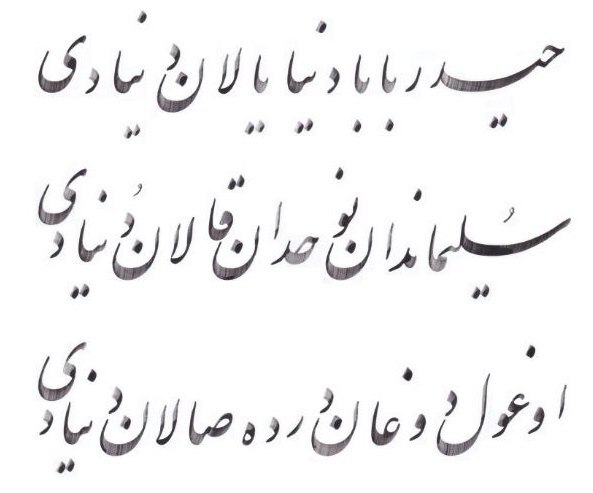 حیدر بابا دنیا یالان دنیادی
سُلیماندان نوحدان قالان دُنیادی
اوغول دوغان درده صالان دنیادی